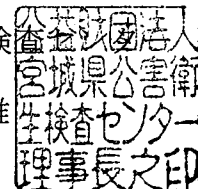 検 査益財団法人
宮城県公害衛
雄 生検査センター
理事長之印